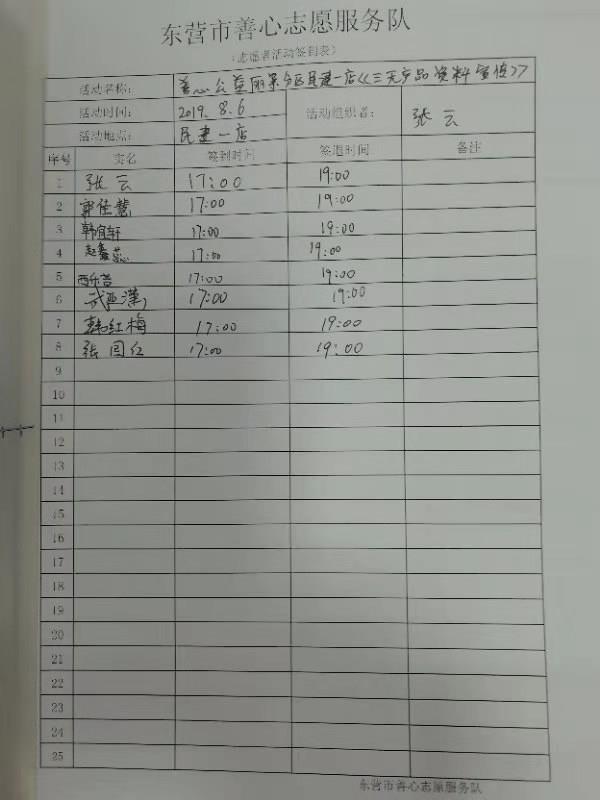 东营市善心志愿服务队
(志愿者活动签到表)
活动名称: 善心公益丽景分区民建一店《三无产品资料宣传》
活动时间: 2019.8.6 活动组织者: 张云
活动地点: 民建一店
序号 实名 签到时间 签退时间 备注
1 张云 17:00 19:00
2 郭佳慧 17:00 19:00
3 韩宜轩 17:00 19:00
4 赵鑫蕊 17:00 19:00
5 17:00 19:00
6 17:00 19:00
7 韩红梅 17:00 19:00
8 张闫红 17:00 19:00
9
10
11
12
13
14
15
16
17
18
19
20
21
22
23
24
25
东营市善心志愿服务队